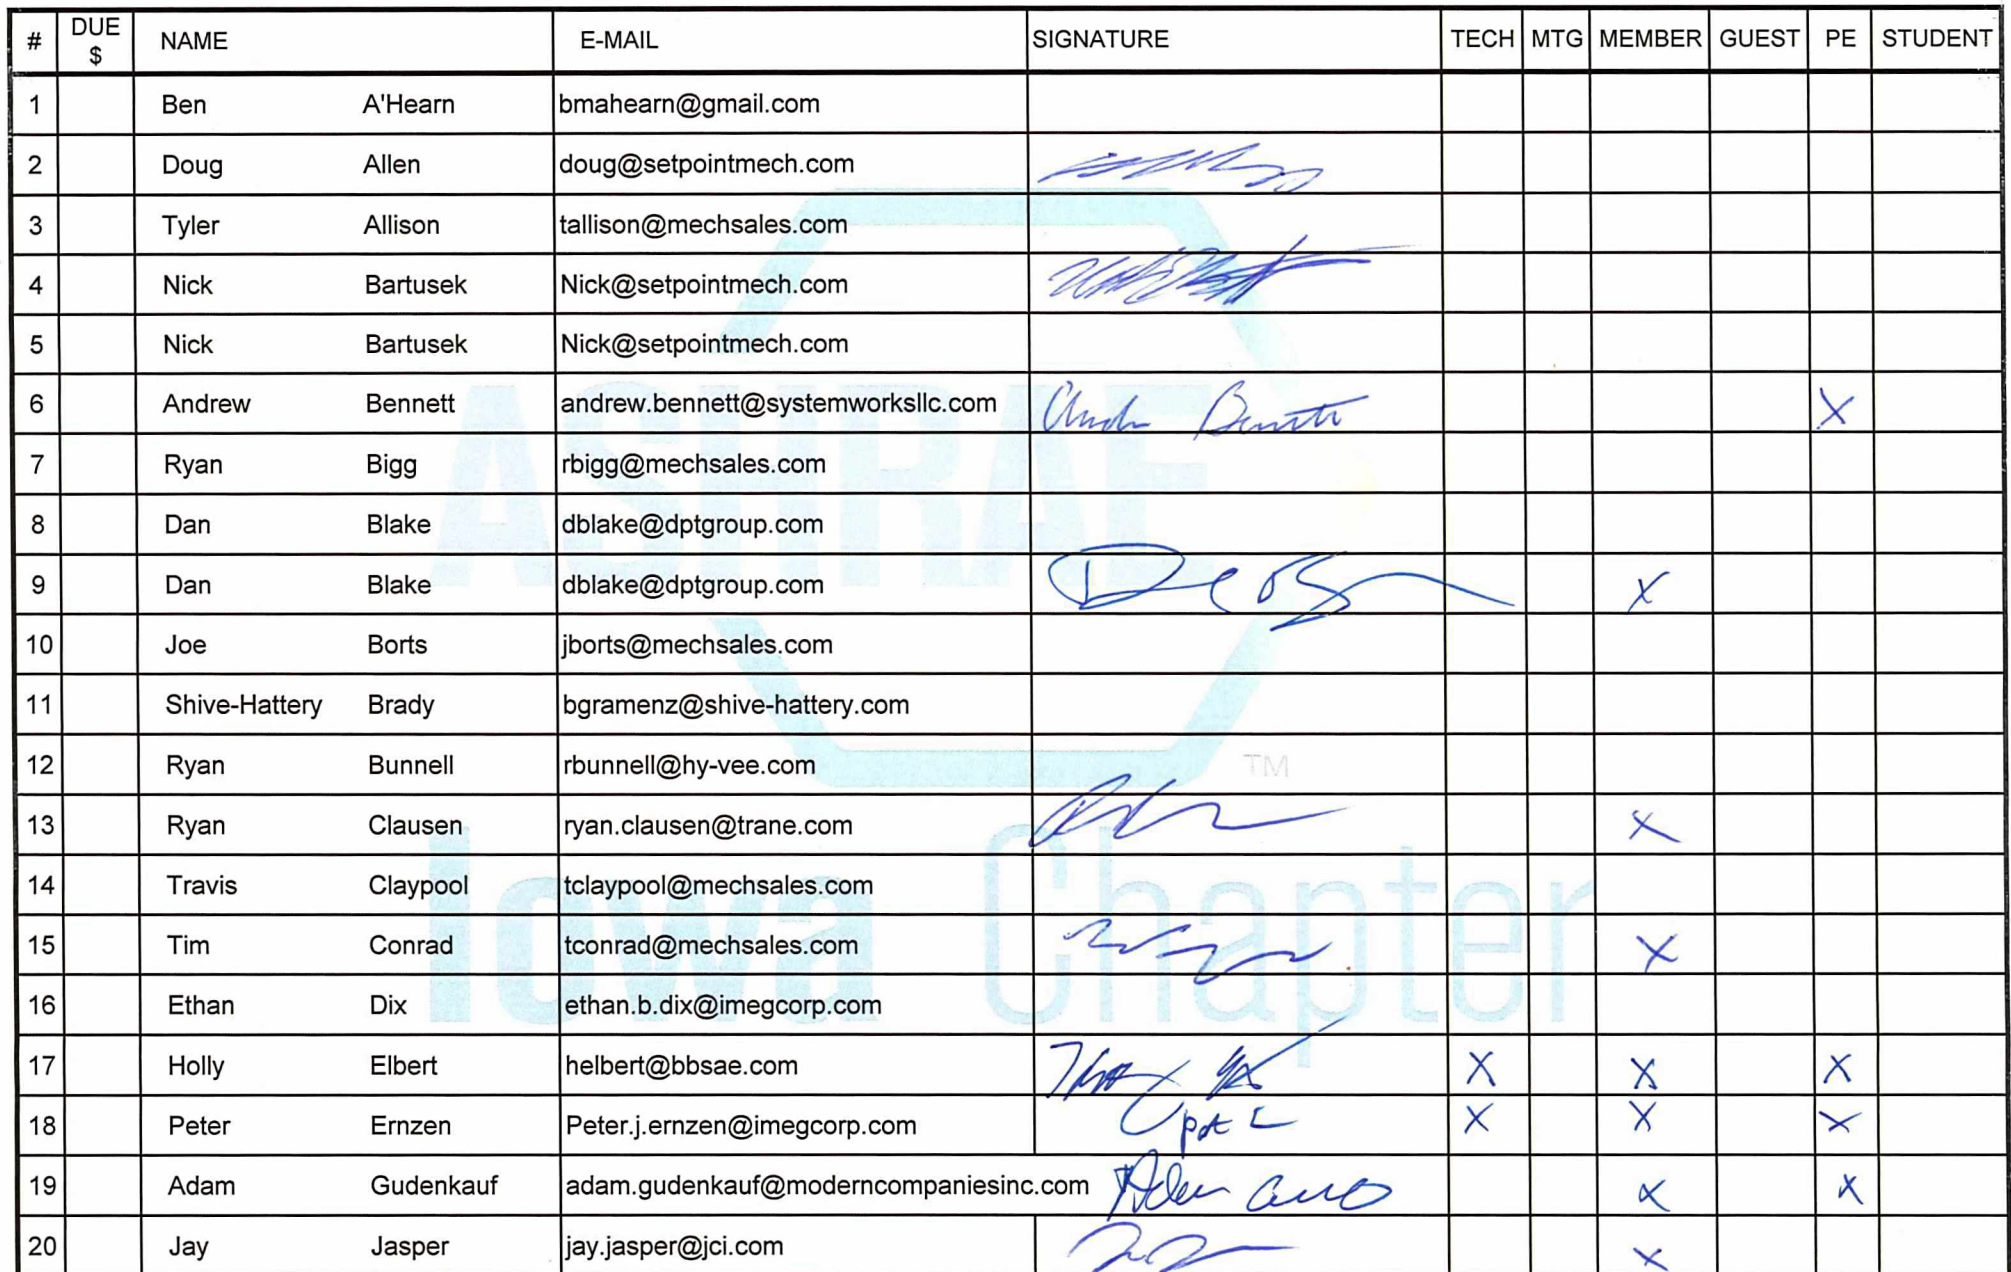 # DUE $ NAME E-MAIL SIGNATURE TECH MTG MEMBER GUEST PE STUDENT
1 Ben A'Hearn bmahearn@gmail.com
2 Doug Allen doug@setpointmech.com
3 Tyler Allison tallison@mechsales.com
4 Nick Bartusek Nick@setpointmech.com
5 Nick Bartusek Nick@setpointmech.com
6 Andrew Bennett andrew.bennett@systemworksllc.com X
7 Ryan Bigg rbigg@mechsales.com
8 Dan Blake dblake@dptgroup.com
9 Dan Blake dblake@dptgroup.com X
10 Joe Borts jborts@mechsales.com
11 Shive-Hattery Brady bgramenz@shive-hattery.com
12 Ryan Bunnell rbunnell@hy-vee.com
13 Ryan Clausen ryan.clausen@trane.com X
14 Travis Claypool tclaypool@mechsales.com
15 Tim Conrad tconrad@mechsales.com X
16 Ethan Dix ethan.b.dix@imegcorp.com
17 Holly Elbert helbert@bbsae.com X X X
18 Peter Ernzen Peter.j.ernzen@imegcorp.com X X X
19 Adam Gudenkauf adam.gudenkauf@moderncompaniesinc.com X X
20 Jay Jasper jay.jasper@jci.com X
ASHRAE
TM
Iowa Chapter